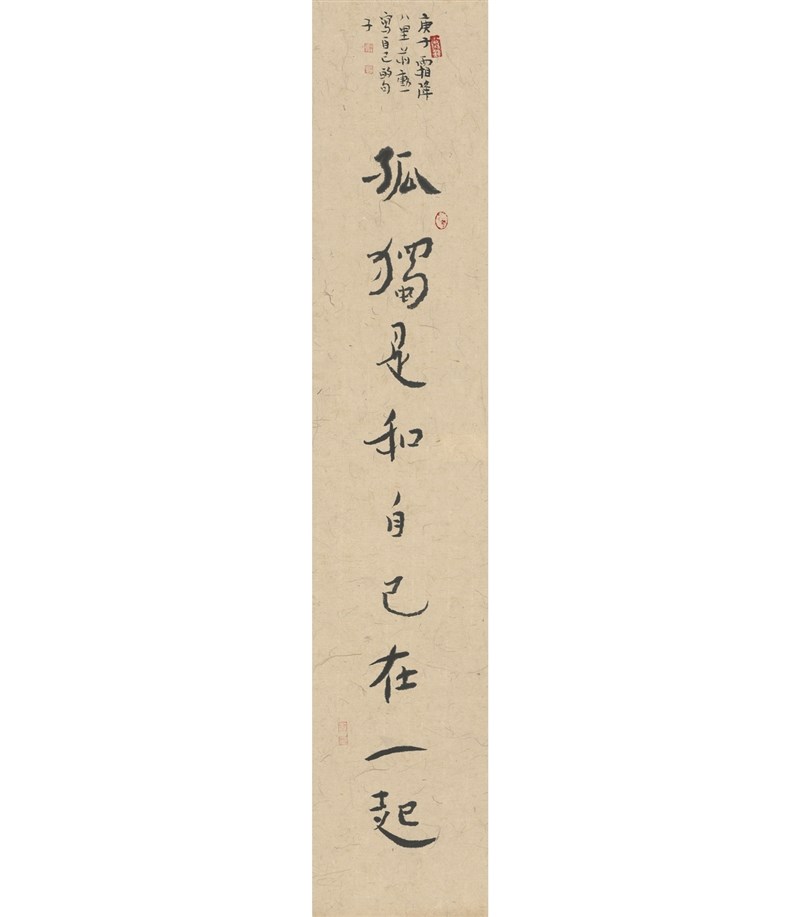 庚子霜降
八里蔣勳一
寫自己的句
子
孤獨是和自己在一起